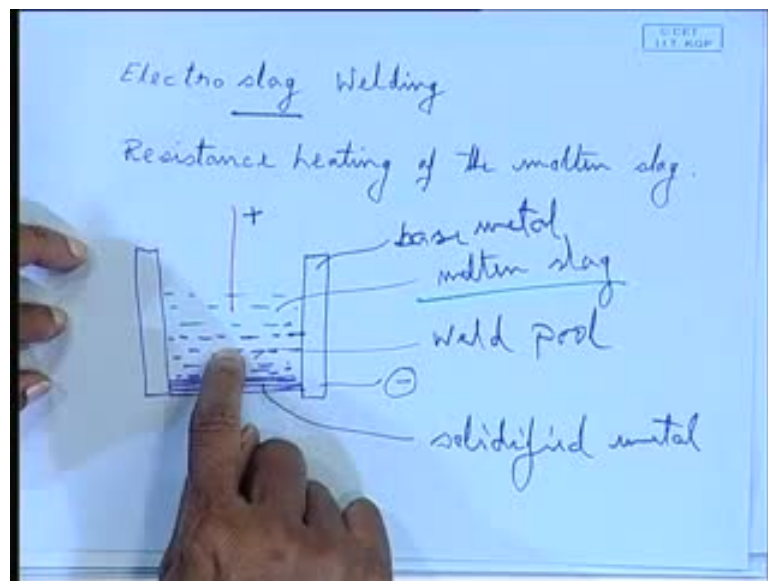 © CET
I.I.T. KGP
Electro slag Welding
Resistance heating of the molten slag.
+
base metal
molten slag
weld pool
−
solidified metal